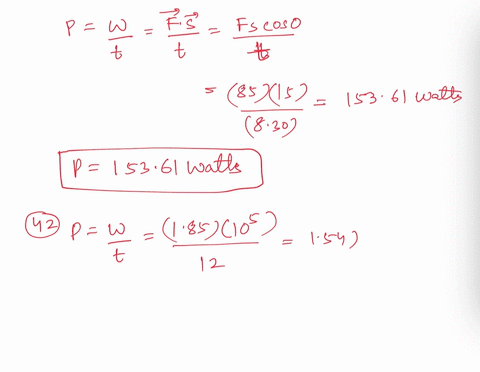 P = W/t = F⃗·S⃗/t = Fs cos0/t
= (85)(15)/(8.30) = 153.61 watts
P = 153.61 watts
(42) P = W/t = (1.85)(10^5)/12 = 1.54)